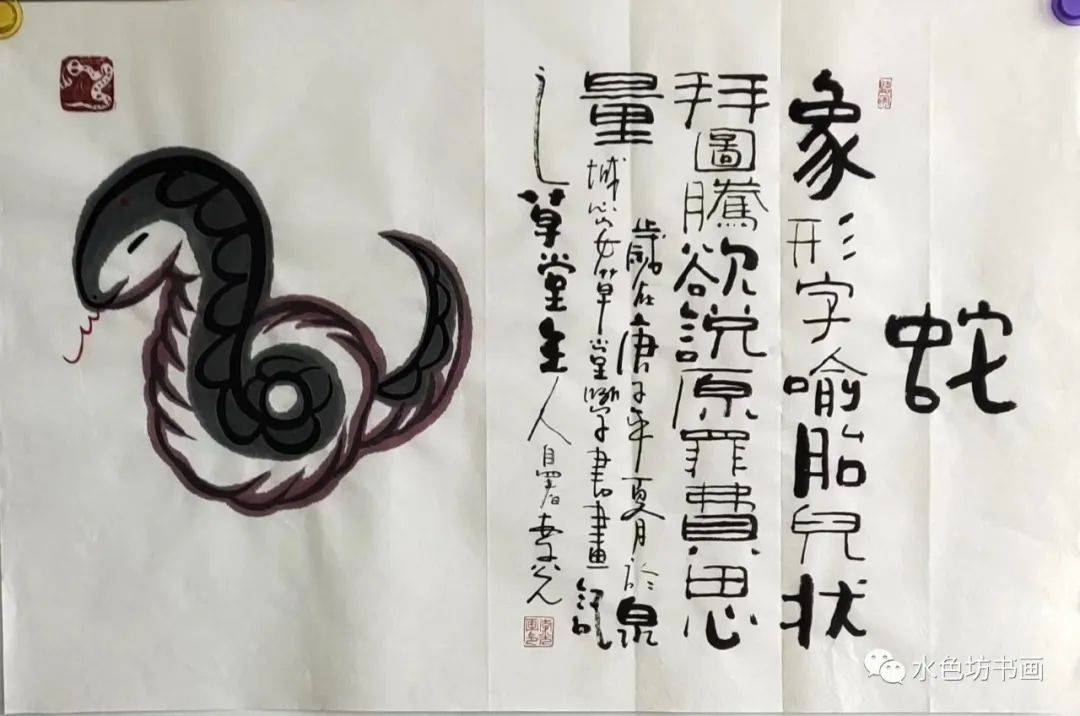 蛇
象形字喻胎兒狀
拜圖騰欲說原罪費思
量
歲在庚子年夏月於泉
城心安草堂學書畫記
之草堂主人自署
水色坊书画